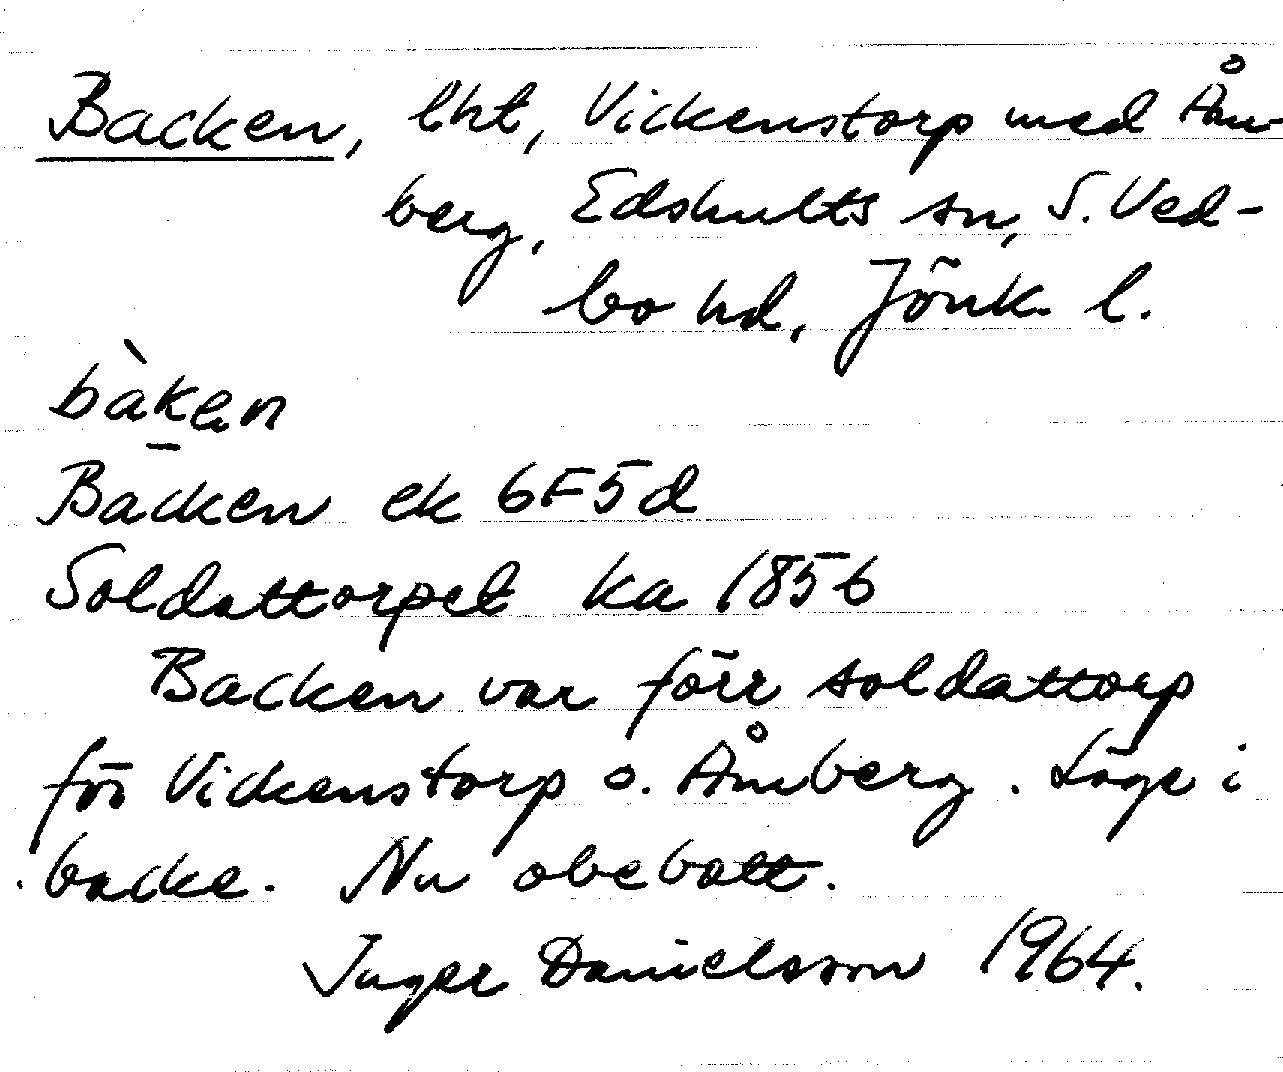 Backen, lht, Vickenstorp med Åm-
berg, Edshults sn, S. Ved-
bo hd, Jönk. l.
bàk̠en
Backen ek 6F5d
Soldattorpet ka 1856
Backen var förr soldattorp
för Vickenstorp o. Åmberg. Läge i
backe. Nu obebott.
Inger Danielsson 1964.